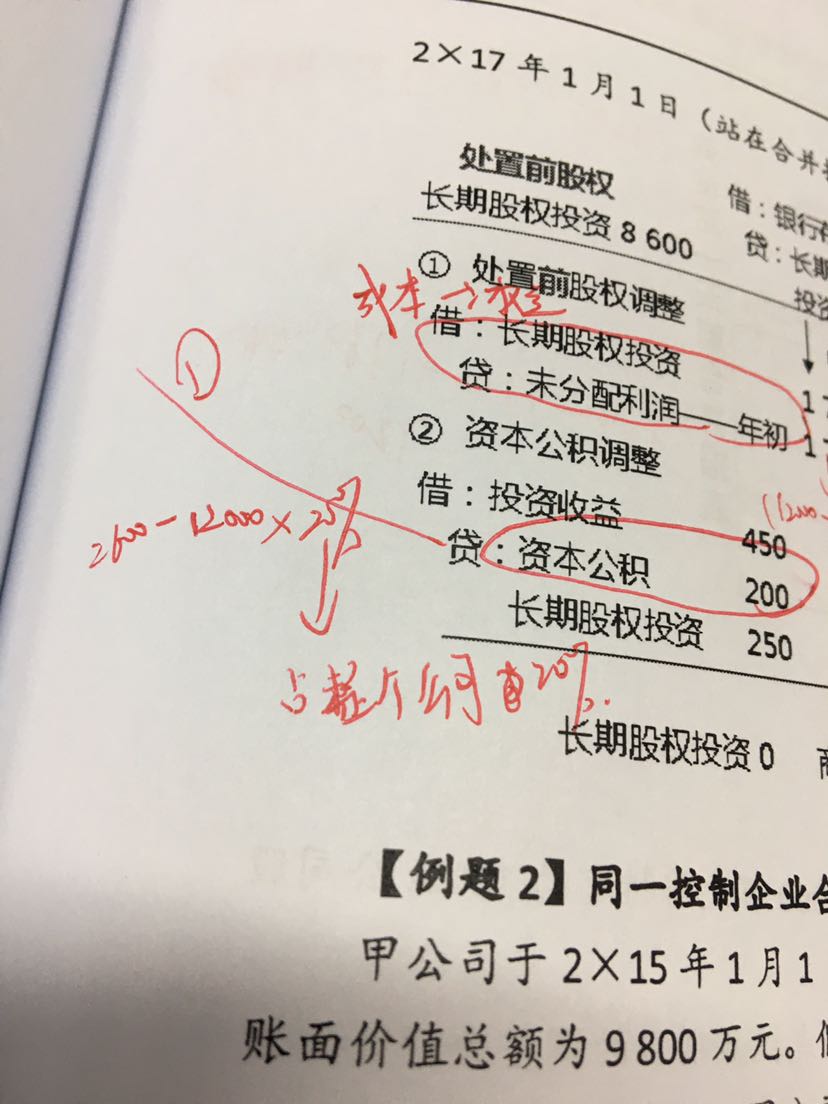 2×17年1月1日（站在合并
处置前股权
长期股权投资 8 600
借：银行
贷：长期
投资
① 处置前股权调整
成本→权益
借：长期股权投资
贷：未分配利润——年初
1
1
①
② 资本公积调整
借：投资收益 450
(1200-
2600-12000×20%
贷：资本公积 200
长期股权投资 250
占整个公司的20%.
长期股权投资 0
商
【例题2】同一控制企业合
甲公司于2×15年1月1
账面价值总额为9 800万元。